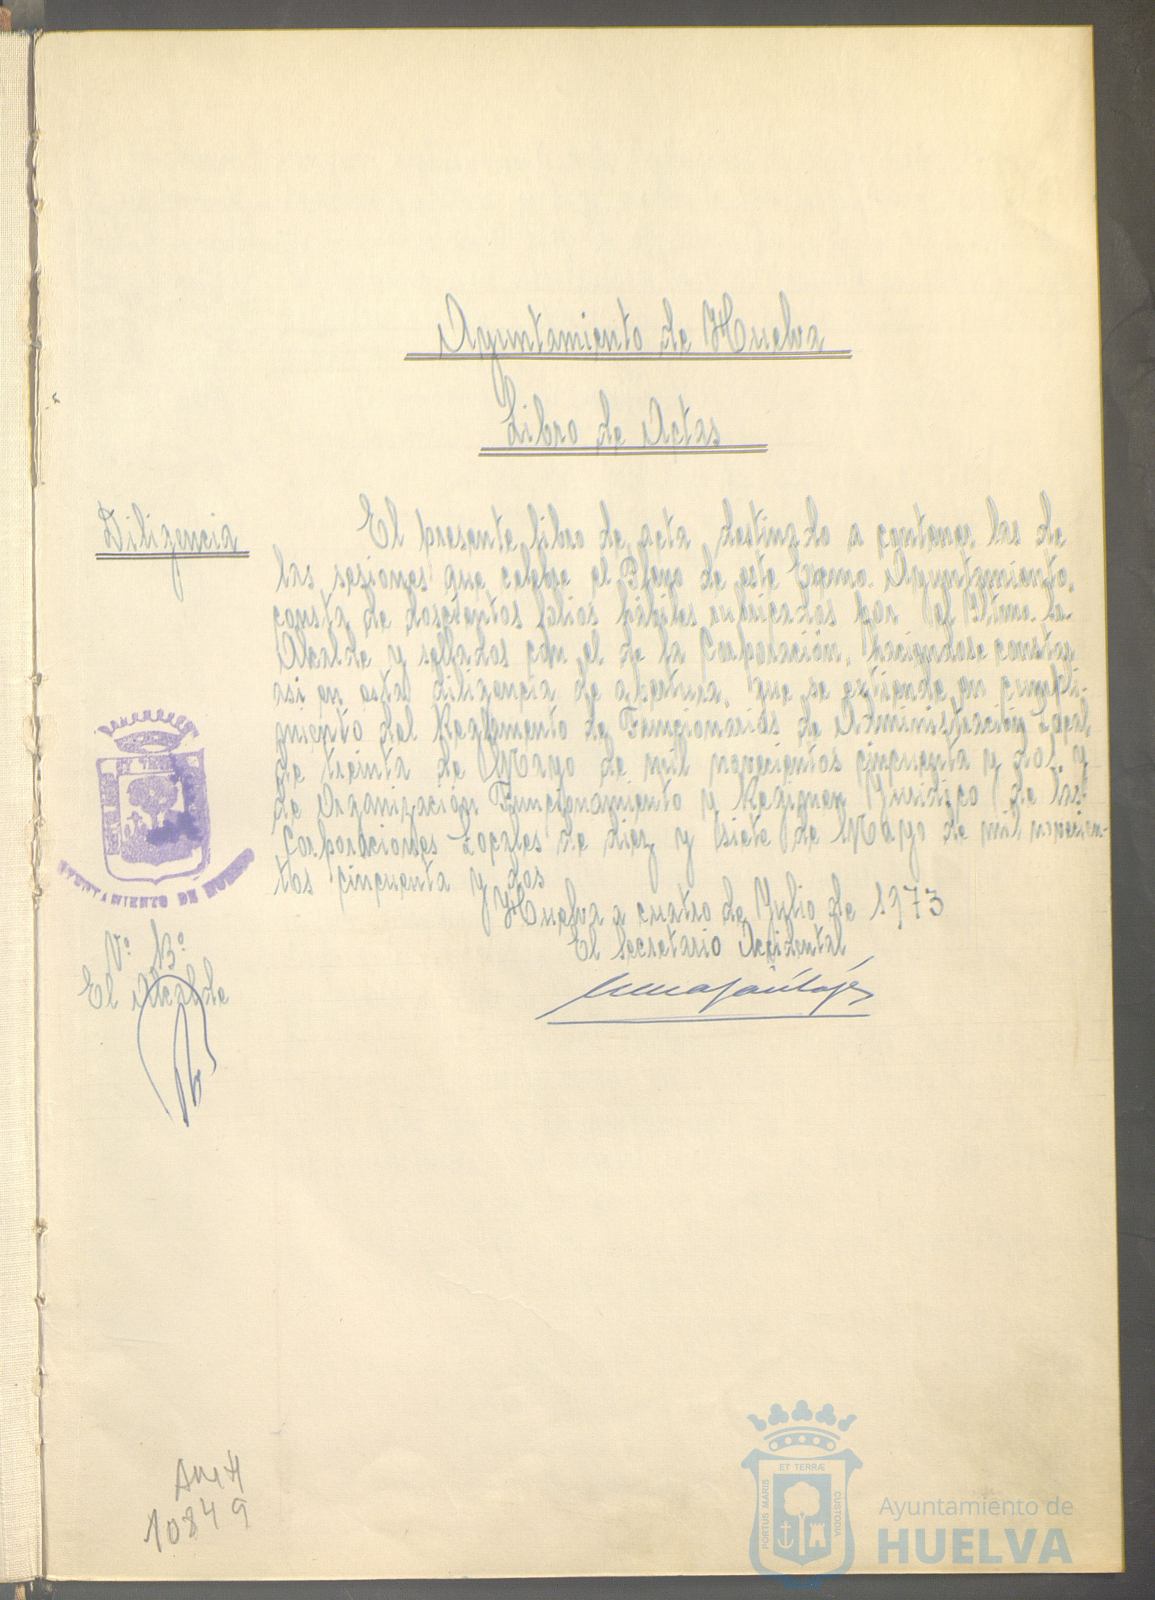 Ayuntamiento de Huelva
Libro de Actas
Diligencia
El presente libro de acta, destinado a contener las de
las sesiones que celebre el Pleno de este Excmo. Ayuntamiento,
consta de doscientos folios hábiles rubricados por el Iltmo. Sr.
Alcalde y sellados con el de la Corporación, haciéndose constar
asi en esta diligencia de apertura, que se extiende en cumpli-
miento del Reglamento de Funcionarios de Administración Local
de treinta de Mayo de mil novecientos cincuenta y dos y
de Organización Funcionamiento y Regimen Juridico de las
Corporaciones Locales de diez y siete de Mayo de mil novecien-
tos cincuenta y dos
Huelva a cuatro de Julio de 1973
El Secretario Accidental
AYUNTAMIENTO DE HUELVA
Vº Bº
El Alcalde
AMH
10849
ET TERRÆ
PORTUS MARIS
CUSTODIA
Ayuntamiento de
HUELVA